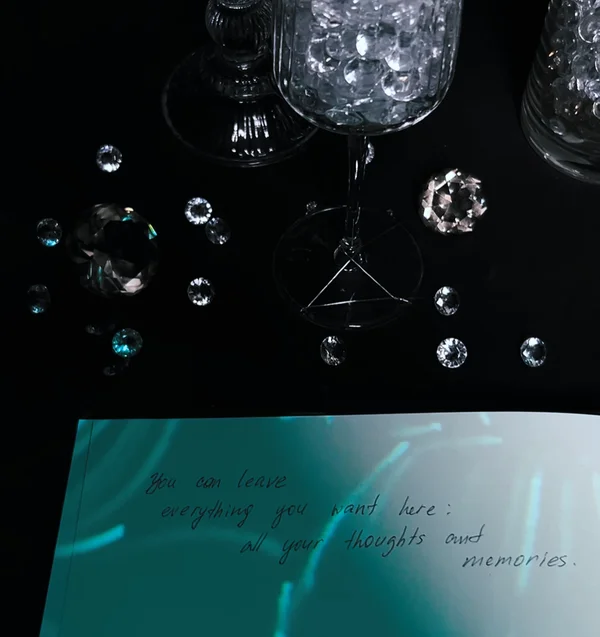 You can leave
everything you want here:
all your thoughts and
memories.